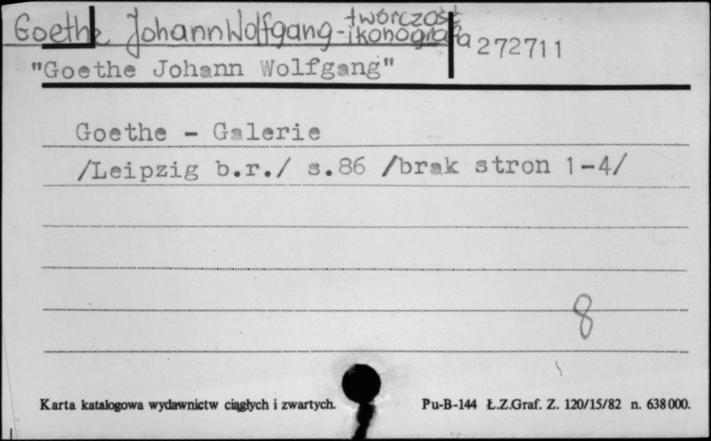 Goethe Johann Wolfgang - twórczość
ikonografia
272711
"Goethe Johann Wolfgang"
Goethe - Galerie
/Leipzig b.r./ s.86 /brak stron 1-4/
8
Karta katalogowa wydawnictw ciągłych i zwartych.
Pu-B-144 Ł.Z.Graf. Z. 120/15/82 n. 638000.